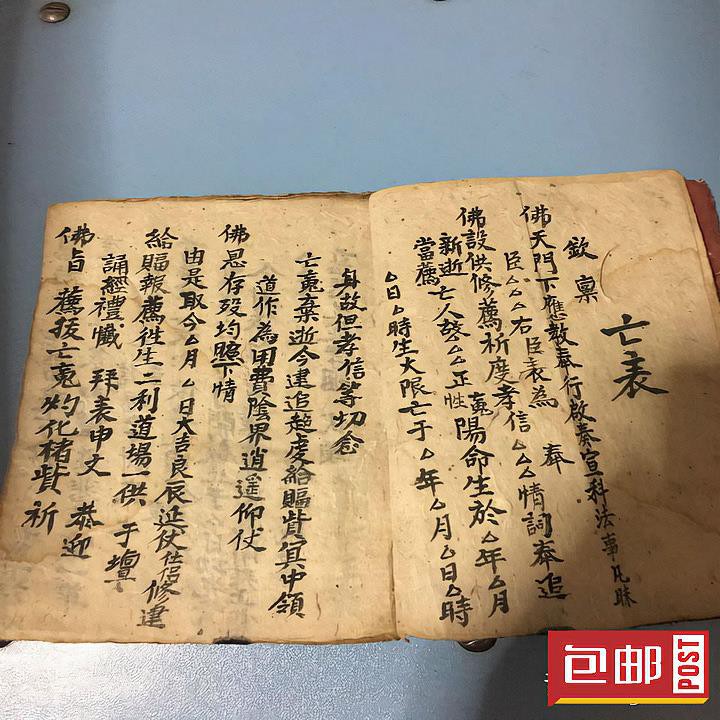 亡表
欽稟
佛天門下應教奉行啟奏宣科法事凡昧
臣△△右臣表為 奉
佛設供修薦祈度孝信△△情詞奉追
新逝亡人諡△△正性䰟陽命生於△年△月
△日△時生大限亡于△年△月△日△時
當薦
身故但孝信等切念
亡䰟棄逝今建追超虔給賜貲冥中領
道作為用費陰界逍遥仰仗
佛恩存殁均照下情
由是取今△月△日大吉良辰延仗侶修建
給賜報薦徃生二利道場一供于壇
誦經禮懺 拜表申文 恭迎
佛旨 薦拔亡䰟灼化楮貲祈
包邮
POST